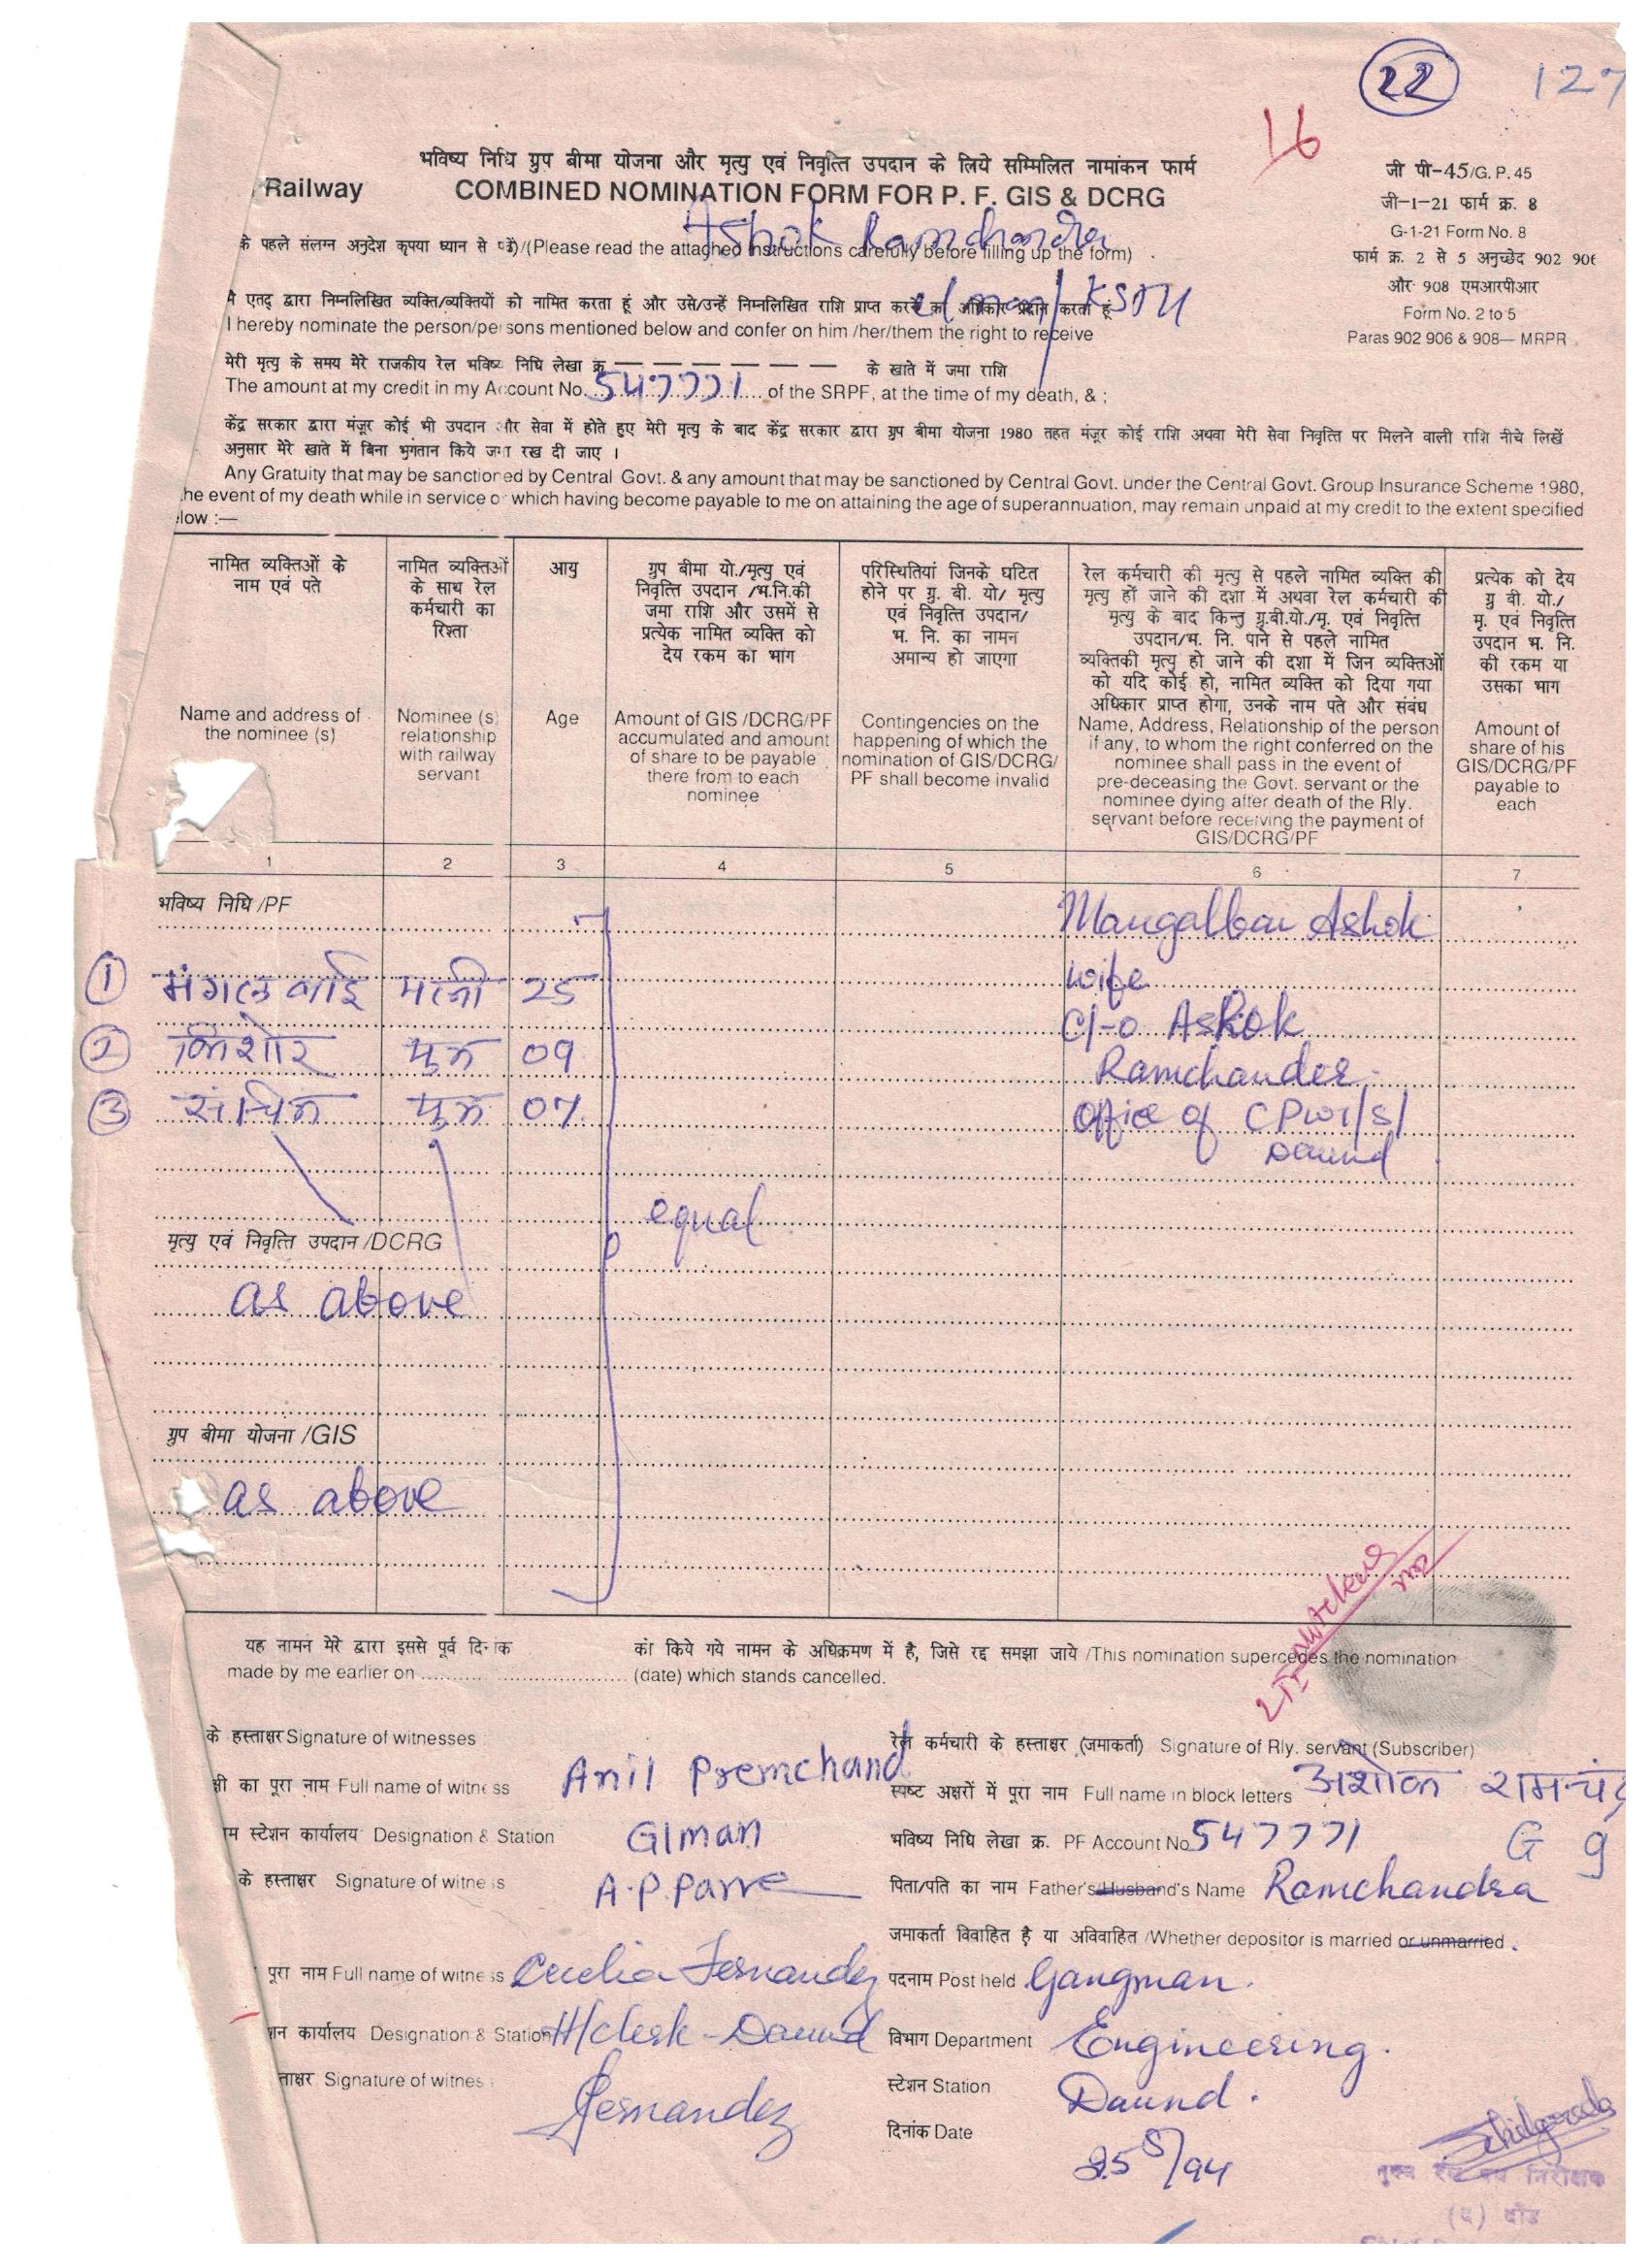 22 127
16
भविष्य निधि ग्रुप बीमा योजना और मृत्यु एवं निवृत्ति उपदान के लिये सम्मिलित नामांकन फार्म
Railway COMBINED NOMINATION FORM FOR P. F. GIS & DCRG
जी पी-45/G. P. 45
जी-1-21 फार्म क्र. 8
G-1-21 Form No. 8
फार्म क्र. 2 से 5 अनुच्छेद 902 906
और 908 एमआरपीआर
Form No. 2 to 5
Paras 902 906 & 908— MRPR
Ashok Ramchandra
के पहले संलग्न अनुदेश कृपया ध्यान से पढ़ें)/(Please read the attached instructions carefully before filling up the form)
मै एतद् द्वारा निम्नलिखित व्यक्ति/व्यक्तियों को नामित करता हूं और उसे/उन्हें निम्नलिखित राशि प्राप्त करने का अधिकार प्रदान करता हूं
I hereby nominate the person/persons mentioned below and confer on him /her/them the right to receive
मेरी मृत्यु के समय मेरे राजकीय रेल भविष्य निधि लेखा क्र — — — — — — के खाते में जमा राशि
The amount at my credit in my Account No. 547771 of the SRPF, at the time of my death, & ;
केंद्र सरकार द्वारा मंजूर कोई भी उपदान और सेवा में होते हुए मेरी मृत्यु के बाद केंद्र सरकार द्वारा ग्रुप बीमा योजना 1980 तहत मंजूर कोई राशि अथवा मेरी सेवा निवृत्ति पर मिलने वाली राशि नीचे लिखें
अनुसार मेरे खाते में बिना भुगतान किये जमा रख दी जाए ।
Any Gratuity that may be sanctioned by Central Govt. & any amount that may be sanctioned by Central Govt. under the Central Govt. Group Insurance Scheme 1980,
he event of my death while in service or which having become payable to me on attaining the age of superannuation, may remain unpaid at my credit to the extent specified
low :—
नामित व्यक्तिओं के
नाम एवं पते
Name and address of
the nominee (s)
नामित व्यक्तिओं
के साथ रेल
कर्मचारी का
रिश्ता
Nominee (s)
relationship
with railway
servant
आयु
Age
ग्रुप बीमा यो./मृत्यु एवं
निवृत्ति उपदान /भ.नि.की
जमा राशि और उसमें से
प्रत्येक नामित व्यक्ति को
देय रकम का भाग
Amount of GIS /DCRG/PF
accumulated and amount
of share to be payable
there from to each
nominee
परिस्थितियां जिनके घटित
होने पर ग्रु. बी. यो/ मृत्यु
एवं निवृत्ति उपदान/
भ. नि. का नामन
अमान्य हो जाएगा
Contingencies on the
happening of which the
nomination of GIS/DCRG/
PF shall become invalid
रेल कर्मचारी की मृत्यु से पहले नामित व्यक्ति की
मृत्यु हो जाने की दशा में अथवा रेल कर्मचारी की
मृत्यु के बाद किन्तु ग्रु.बी.यो./मृ. एवं निवृत्ति
उपदान/भ. नि. पाने से पहले नामित
व्यक्तिकी मृत्यु हो जाने की दशा में जिन व्यक्तिओं
को यदि कोई हो, नामित व्यक्ति को दिया गया
अधिकार प्राप्त होगा, उनके नाम पते और संबंध
Name, Address, Relationship of the person
if any, to whom the right conferred on the
nominee shall pass in the event of
pre-deceasing the Govt. servant or the
nominee dying after death of the Rly.
servant before receiving the payment of
GIS/DCRG/PF
प्रत्येक को देय
ग्रु बी. यो./
मृ. एवं निवृत्ति
उपदान भ. नि.
की रकम या
उसका भाग
Amount of
share of his
GIS/DCRG/PF
payable to
each
1 2 3 4 5 6 7
भविष्य निधि /PF
Mangalbai Ashok
① मंगल बाई पत्नी 25 wife
② किशोर पुत्र 09 C/-o Ashok
Ramchander
③ सचिन पुत्र 07 Office of CPWI/S/
Daund
equal
मृत्यु एवं निवृत्ति उपदान /DCRG
as above
ग्रुप बीमा योजना /GIS
as above
यह नामन मेरे द्वारा इससे पूर्व दिनांक को किये गये नामन के अधिक्रमण में है, जिसे रद्द समझा जाये /This nomination supercedes the nomination
made by me earlier on (date) which stands cancelled.
के हस्ताक्षर Signature of witnesses
रेल कर्मचारी के हस्ताक्षर (जमाकर्ता) Signature of Rly. servant (Subscriber)
क्षी का पूरा नाम Full name of witness Anil Premchand
स्पष्ट अक्षरों में पूरा नाम Full name in block letters अशोक रामचंद्र
म स्टेशन कार्यालय Designation & Station G/man
भविष्य निधि लेखा क्र. PF Account No 547771 G 9
के हस्ताक्षर Signature of witness
पिता/पति का नाम Father's/Husband's Name Ramchandra
जमाकर्ता विवाहित है या अविवाहित /Whether depositor is married or unmarried .
पूरा नाम Full name of witness Cecelia Fernandez
पदनाम Post held Gangman.
शन कार्यालय Designation & Station H/clerk - Daund
विभाग Department Engineering.
ताक्षर Signature of witness Fernandez
स्टेशन Station Daund.
दिनांक Date 25/5/94
मुख्य रेल पथ निरीक्षक
(द) दौंड